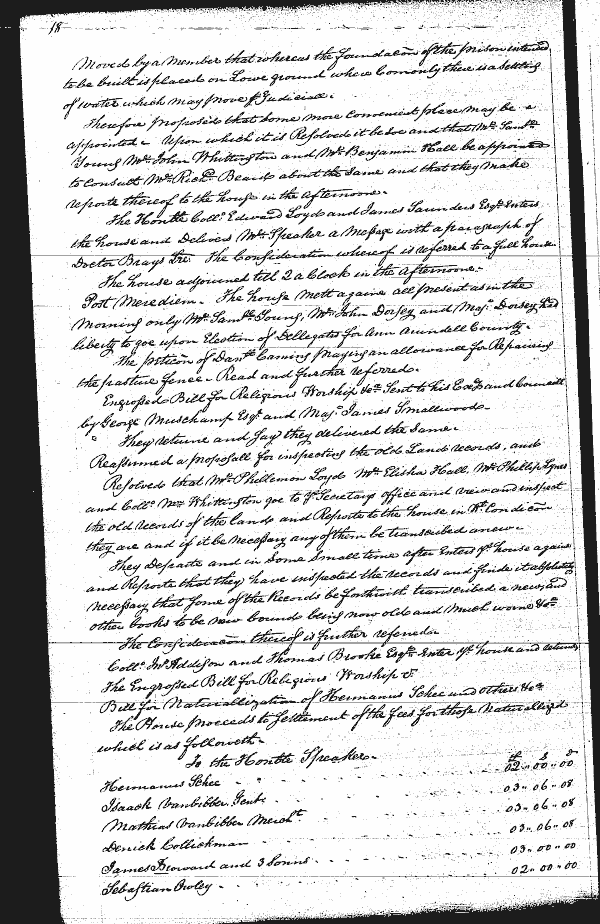 18
Moved by a Member that whereas the foundacõn of the Prison intended
to be built is placed on Lowe ground where Comonly there is a Setling
of water which may prove prJudiciall.
Therefore proposed that some more convenient place may be
appointed Upon which it is Resolved it be soe and that Mr. Samll.
Young Mr. John Whittington and Mr. Benjamin Hall be appointed
to Consult Mr. Richd. Beard about the Same and that they make
reporte thereof to the house in the afternoone.
The Honble Collo. Edward Loyd and James Saunders Esqr. Enters
the house and Delivers Mr. Speaker a Message with a paragraph of
Doctor Brays Lre. The Consideration whereof is referred to a full house
The house adjourned till 2 a Clock in the afternoone.
Post Merediem. The house mett againe all present as in the
Morning only Mr. Samll. Young, Mr. John Dorsey and Maj. Dorsey had
liberty to goe upon Election of Dellegates for Ann Arundell County.
The peticõn of Danll. Caning praying an allowance for Repairing
the pasture fence. Read and further referred.
Engrossed Bill for Religious Worship &ca. Sent to his Excy and Councill
by George Muschamp Esqr. and Maj. James Smallwood.
They returne and Say they delivered the Same.
Reassumed a proposall for inspecting the old Land records, and
Resolved that Mr. Phillemon Loyd Mr. Elisha Hall, Mr. Phillip Lynes
and Collo. Wm. Whittington goe to ye Secretarys office and view and inspect
the old records of the lands and Reporte to the house in wt. Condicõn
they are and if it be necessary any of them be transcribed anew.
They Departe and in Some Small time after Enters ye. house againe
and Reporte that they have inspected the records and finde it absolutely
necessary that Some of the Records be forthwith transcribed a new and
other books to be new bound being now old and much worne &ca.
The Consideration thereof is further referred.
Collo. Jno. Addison and Thomas Brooke Esqrs. Enter ye. house and returns
The Engrossed Bill for Religious Worship &
Bill for Naturallization of Hermanus Schee and others &ca.
The House proceeds to Settlement of the fees for those Naturallized
which is as followeth.
To the Honble Speaker. £ s d
Hermanus Schee 02 .. 00 .. 00
Isaack Vanbibber Gent. 03 .. 06 .. 08
Mathias Vanbibber Mercht. 03 .. 06 .. 08
Derick Collickman 03 .. 06 .. 08
James Broward and 3 Sonns 03 .. 00 .. 00
Sebastian Owley 02 .. 00 .. 00